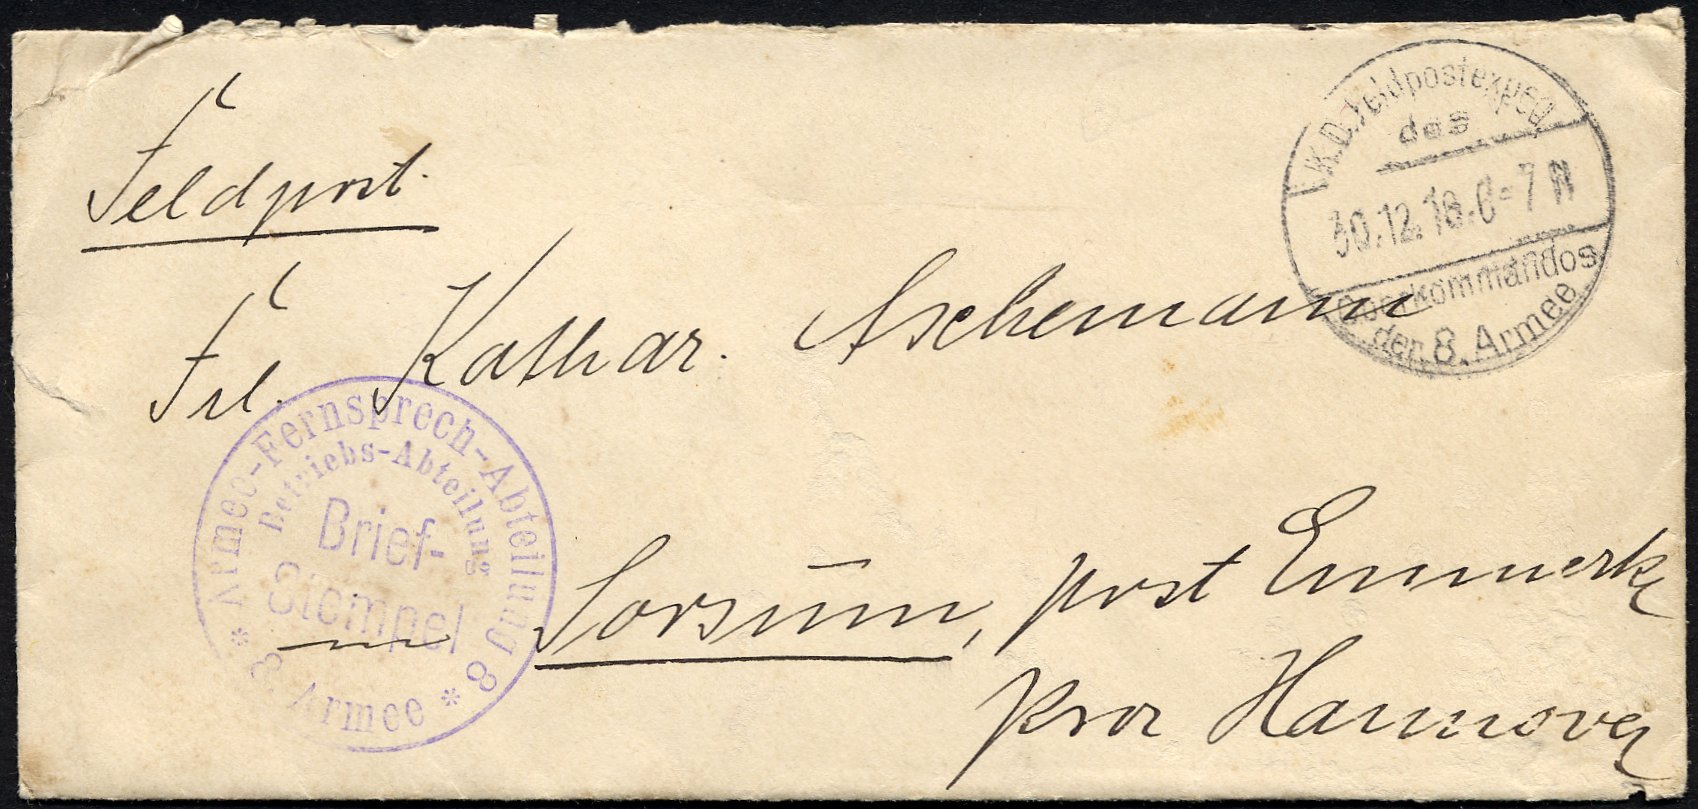 Feldpost.
K.D. Feldpostexped.
des
30.12.16. 6-7 N
Oberkommandos
der 8. Armee
Frl. Kathar. Aschemann
Armee-Fernsprech-Abteilung 8
Betriebs-Abteilung
Brief-
Stempel
* 8. Armee *
in Sorsum, post Emmerke
Prov Hannover